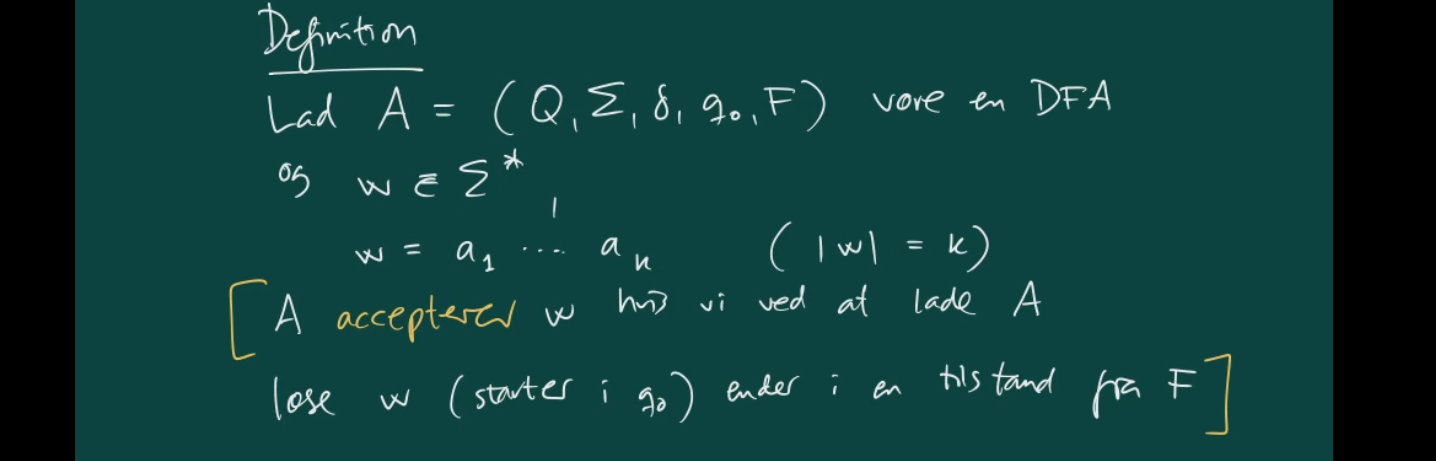 Definition
Lad A = (Q, Σ, δ, q₀, F) være en DFA
og w ∈ Σ*,
w = a₁ ... aₖ (|w| = k)
[A accepterer w hvis vi ved at lade A
læse w (starter i q₀) ender i en tilstand fra F]